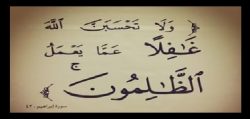 ﴿ وَلَا تَحْسَبَنَّ اللَّهَ
غَٰفِلًا عَمَّا يَعْمَلُ
ٱلظَّٰلِمُونَ ۚ ﴾
سورة إبراهيم، ٤٢